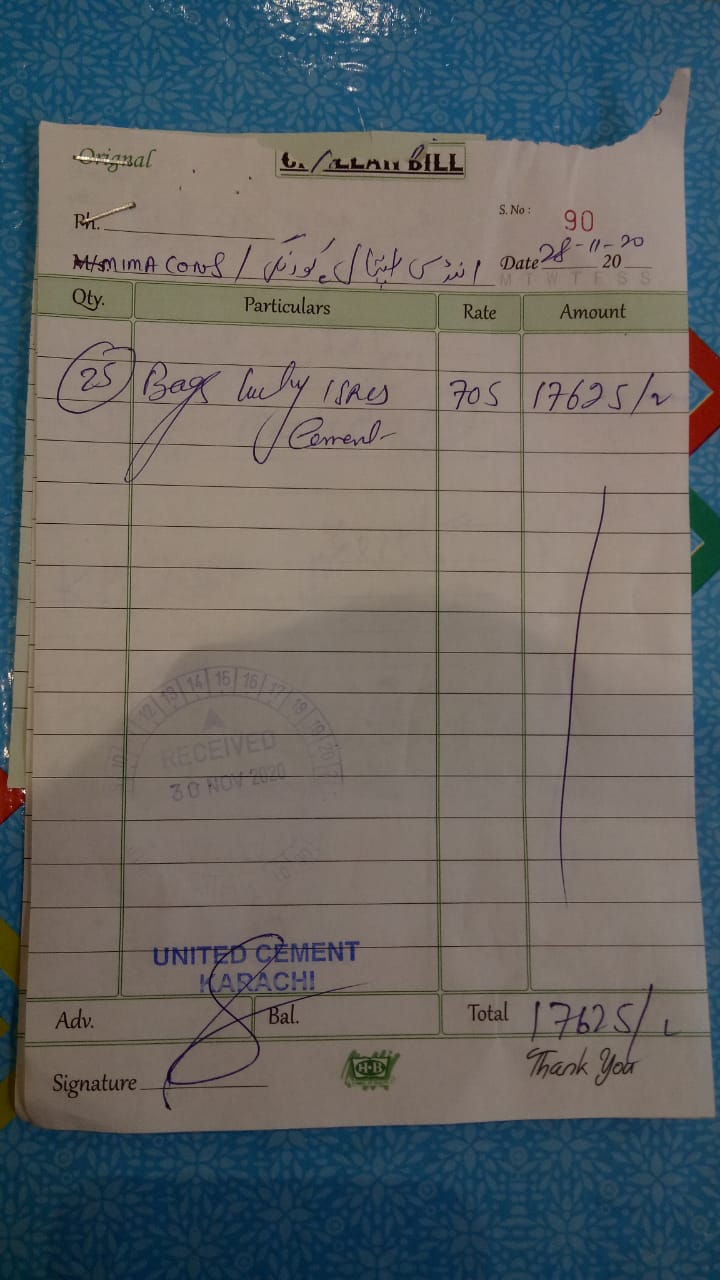 Orignal
BILL
S. No : 90
Ph.
M/s MIMA CONS / انڈس ہسپتال کورنگی
Date 28-11-20 20
M T W T F S S
Qty. Particulars Rate Amount
25 Bags Lucky 705 17625/-
Cement
12 13 14 15 16 17 18 19 20
RECEIVED
30 NOV 2020
UNITED CEMENT
KARACHI
Adv. Bal. Total 17625/-
Thank You
Signature
H-B